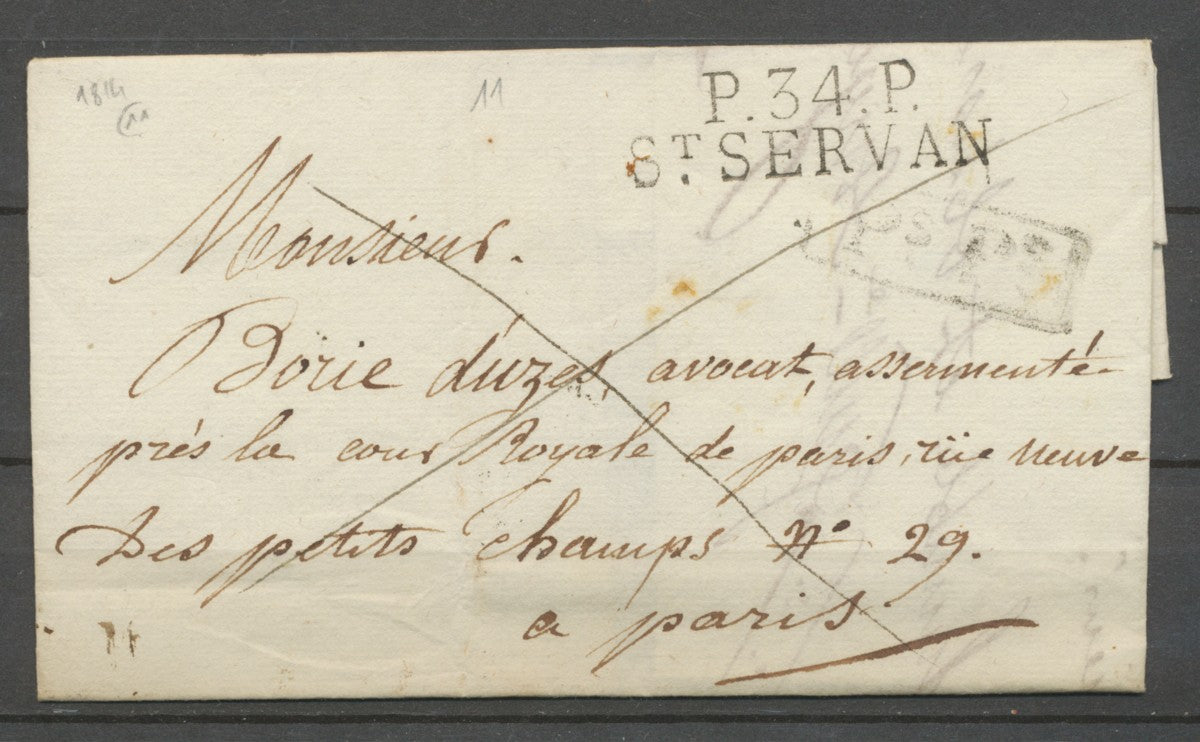 1814
11
11
P.34.P.
ST. SERVAN
Monsieur.
Dorie dúzes, avocat, assermenté
près la cour Royale de paris, rüe neuve
Des petits Champs N° 29.
a paris